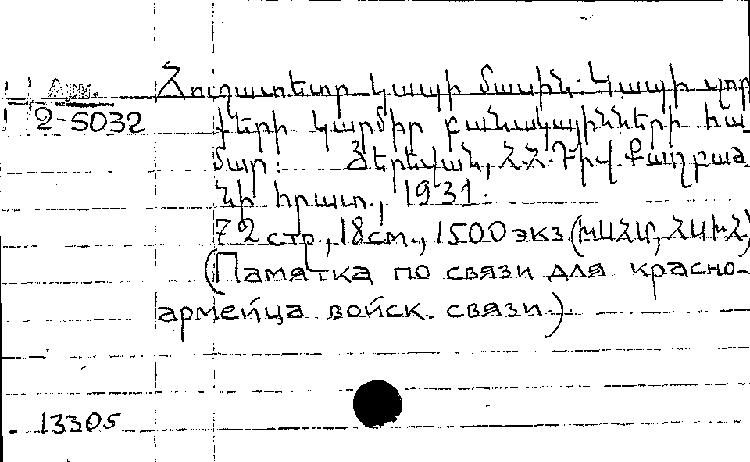 Арм.
2-5032
Հուշատետր կապի մասին: Կապի զոր
քերի կարմիր բանակայինների հա-
մար: Յերեվան, Հ.Հ. Դիվ. Քաղբաժ
նի հրատ., 1931.
72 стр., 18 см., 1500 экз.
(Памятка по связи для красно-
армейца войск. связи.)
13305